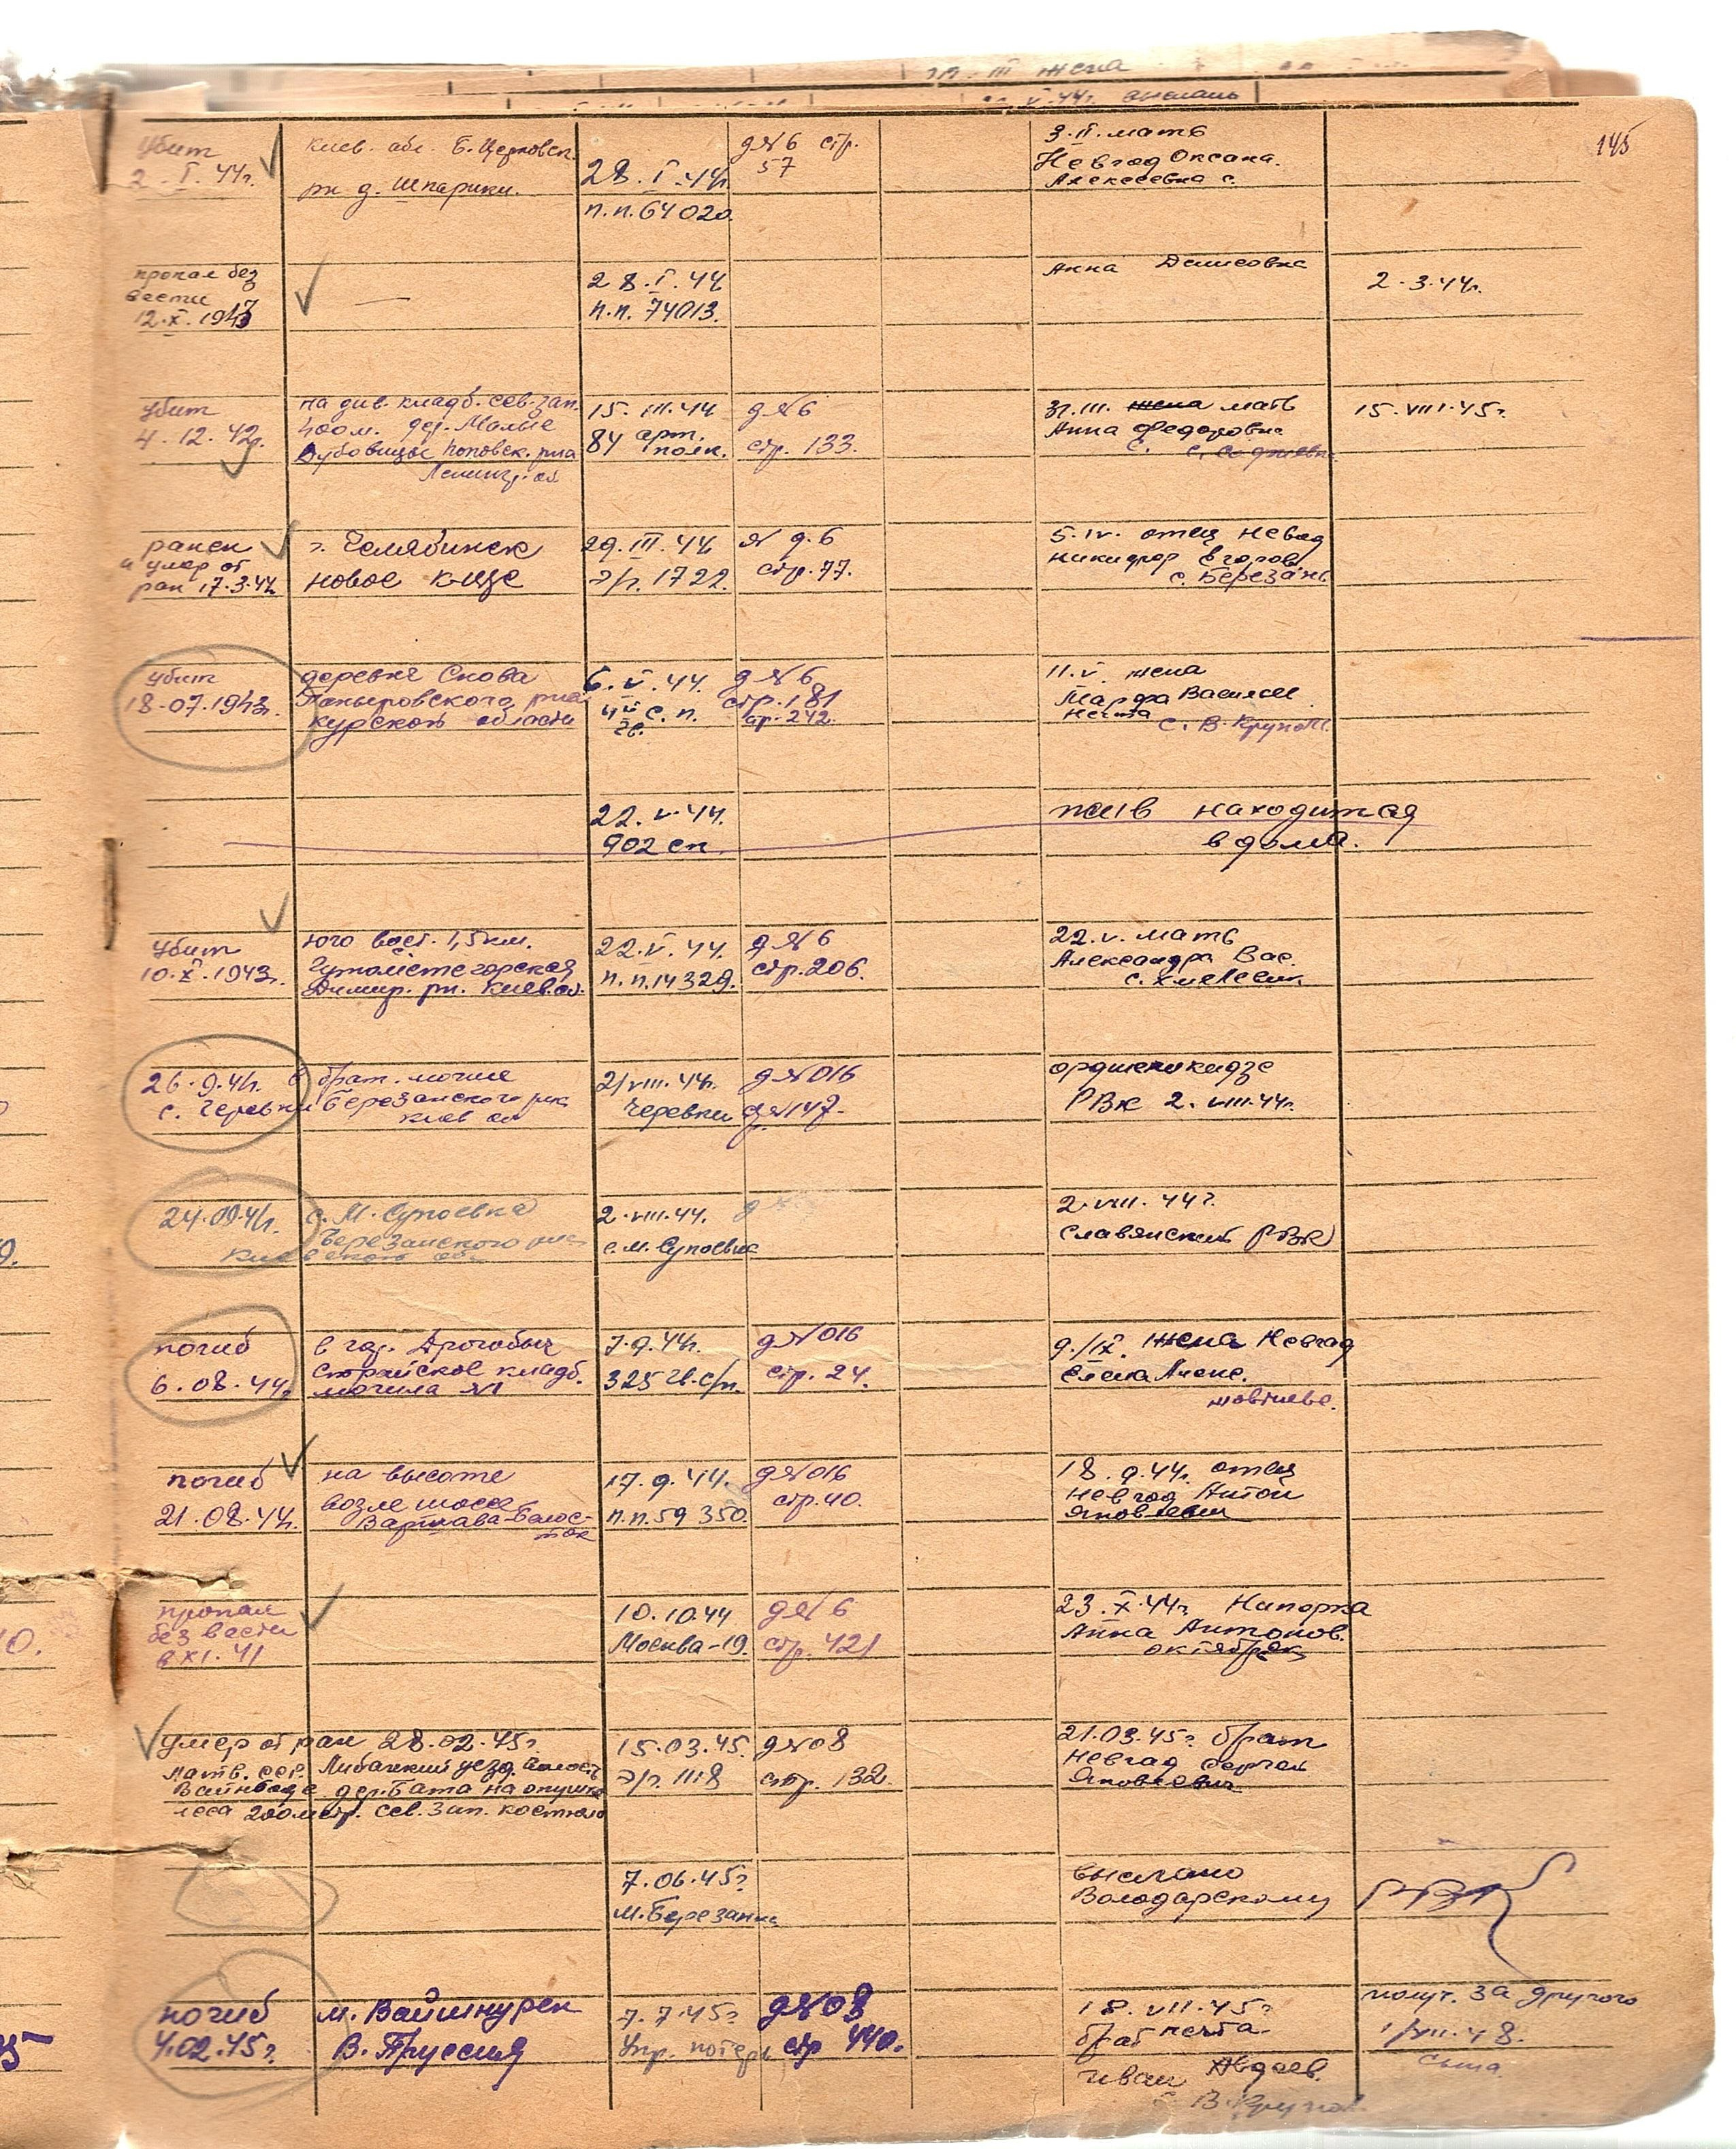 III жена
V 44г.
145
убит
2. I. 44г.
Киев. обл. Б. Церковск.
рн д. Шпарики.
28. I. 44г
п.п. 64020.
д №6 стр.
57
3. II. мать
Невгод Оксана.
Алексеевна с.
пропал без
вести
12. X. 1943
—
28. I. 44
п.п. 74013.
Анна Денисовна
2. 3. 44г.
убит
4. 12. 42г.
на див. кладб. сев-зап.
400 м. дер. Малые
Дубовицы Поповск. р-на
Ленингр. об
15. III. 44
84 арт.
полк.
д №6
стр. 133.
31. III. жена мать
Анна Федоровна
с.
15. VIII. 45г.
ранен
и умер от
ран 17. 3. 44
г. Челябинск
новое к-ще
29. III. 44
э/г. 1722.
№ д. 6
стр. 77.
5. IV. отец Невгод
Никифор Егоров.
с. Березань
убит
18. 07. 1943г.
деревня Снова
Поныровского р-на
Курской области
6. V. 44.
4й с.п.
гв.
д №6
стр. 181
ст. 242.
11. V. жена
Марфа Васильев
Нечта
с. В. Крупол.
22. V. 44.
902 сп.
жив находится
в дома.
убит
10. X. 1943г.
юго вост. 1,5 км.
Димир. рн. Киев. об.
22. V. 44.
п.п. 14329.
д №6
стр. 206.
22. V. мать
Александра Вас.
с. Хмелевик
26. 9. 41. в брат. могиле
с. Черевки Березанского р-на
Киев об
21 VIII. 44г.
Черевки
д №016
д №147.
Орджоникидзе
РВК 2. VIII. 44г.
24. 09. 41. с. М. Супоевка
Березанского р-на
Киевской об.
2. VIII. 44.
с. М. Супоевка
2. VIII. 44г
Славянский РВК
погиб
6. 08. 44г.
в гор. Дрогобыч
Стрийское кладб.
могила №1
7. 9. 44г.
325 гв. с/п.
д №016
стр. 24.
9./IX. жена Невгод
Елена Алекс.
Жовтневе.
погиб
21. 08. 44.
на высоте
возле шоссе
Варшава-Белос-
ток
17. 9. 44.
п.п. 59350.
д №016
стр. 40.
18. 9. 44г. отец
Невгод Антон
Яковлевич
пропал
без вести
в XI. 41
10. 10. 44
Москва-19.
д №6
стр. 421
23. X. 44г. Нипорка
Анна Антонов.
умер от ран 28. 02. 45г.
Латв. ССР. Либавский уезд. волость
Вайньоде дер. Бата на опушке
леса 200 метр. сев. зап.
15. 03. 45.
э/г. 1118
д №08
стр. 132.
21. 03. 45г. брат
Невгод Сергей
Яковлевич
7. 06. 45г
М. Березанка
выслано
Володарскому
РВК
погиб
4. 02. 45г.
м. Вайшнурен
В. Пруссия
7. 7. 45г
Упр. потерь
д №08
стр 440.
18. VII. 45г
брат Нечта
Иван Авдеев.
с В. Крупол.
получ. за другого
1/VII. 48.
сына.